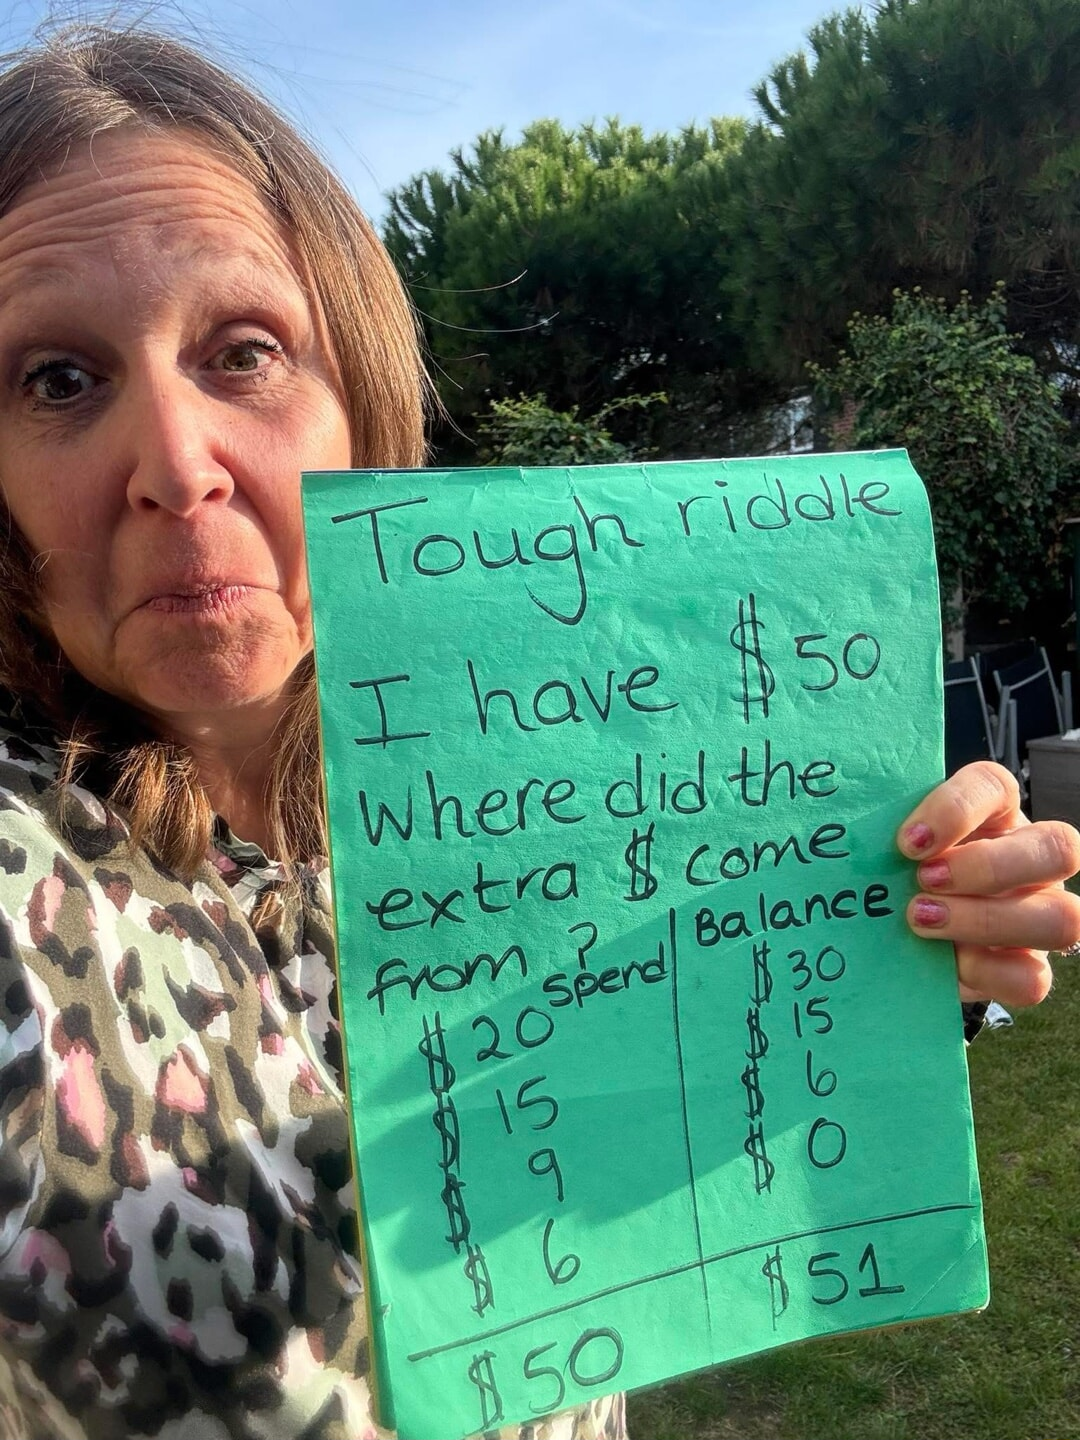 Tough riddle
I have $50
Where did the
extra $ come
from?
spend | Balance
$ 20 | $ 30
$ 15 | $ 15
$ 9 | $ 6
$ 6 | $ 0
$50 | $51